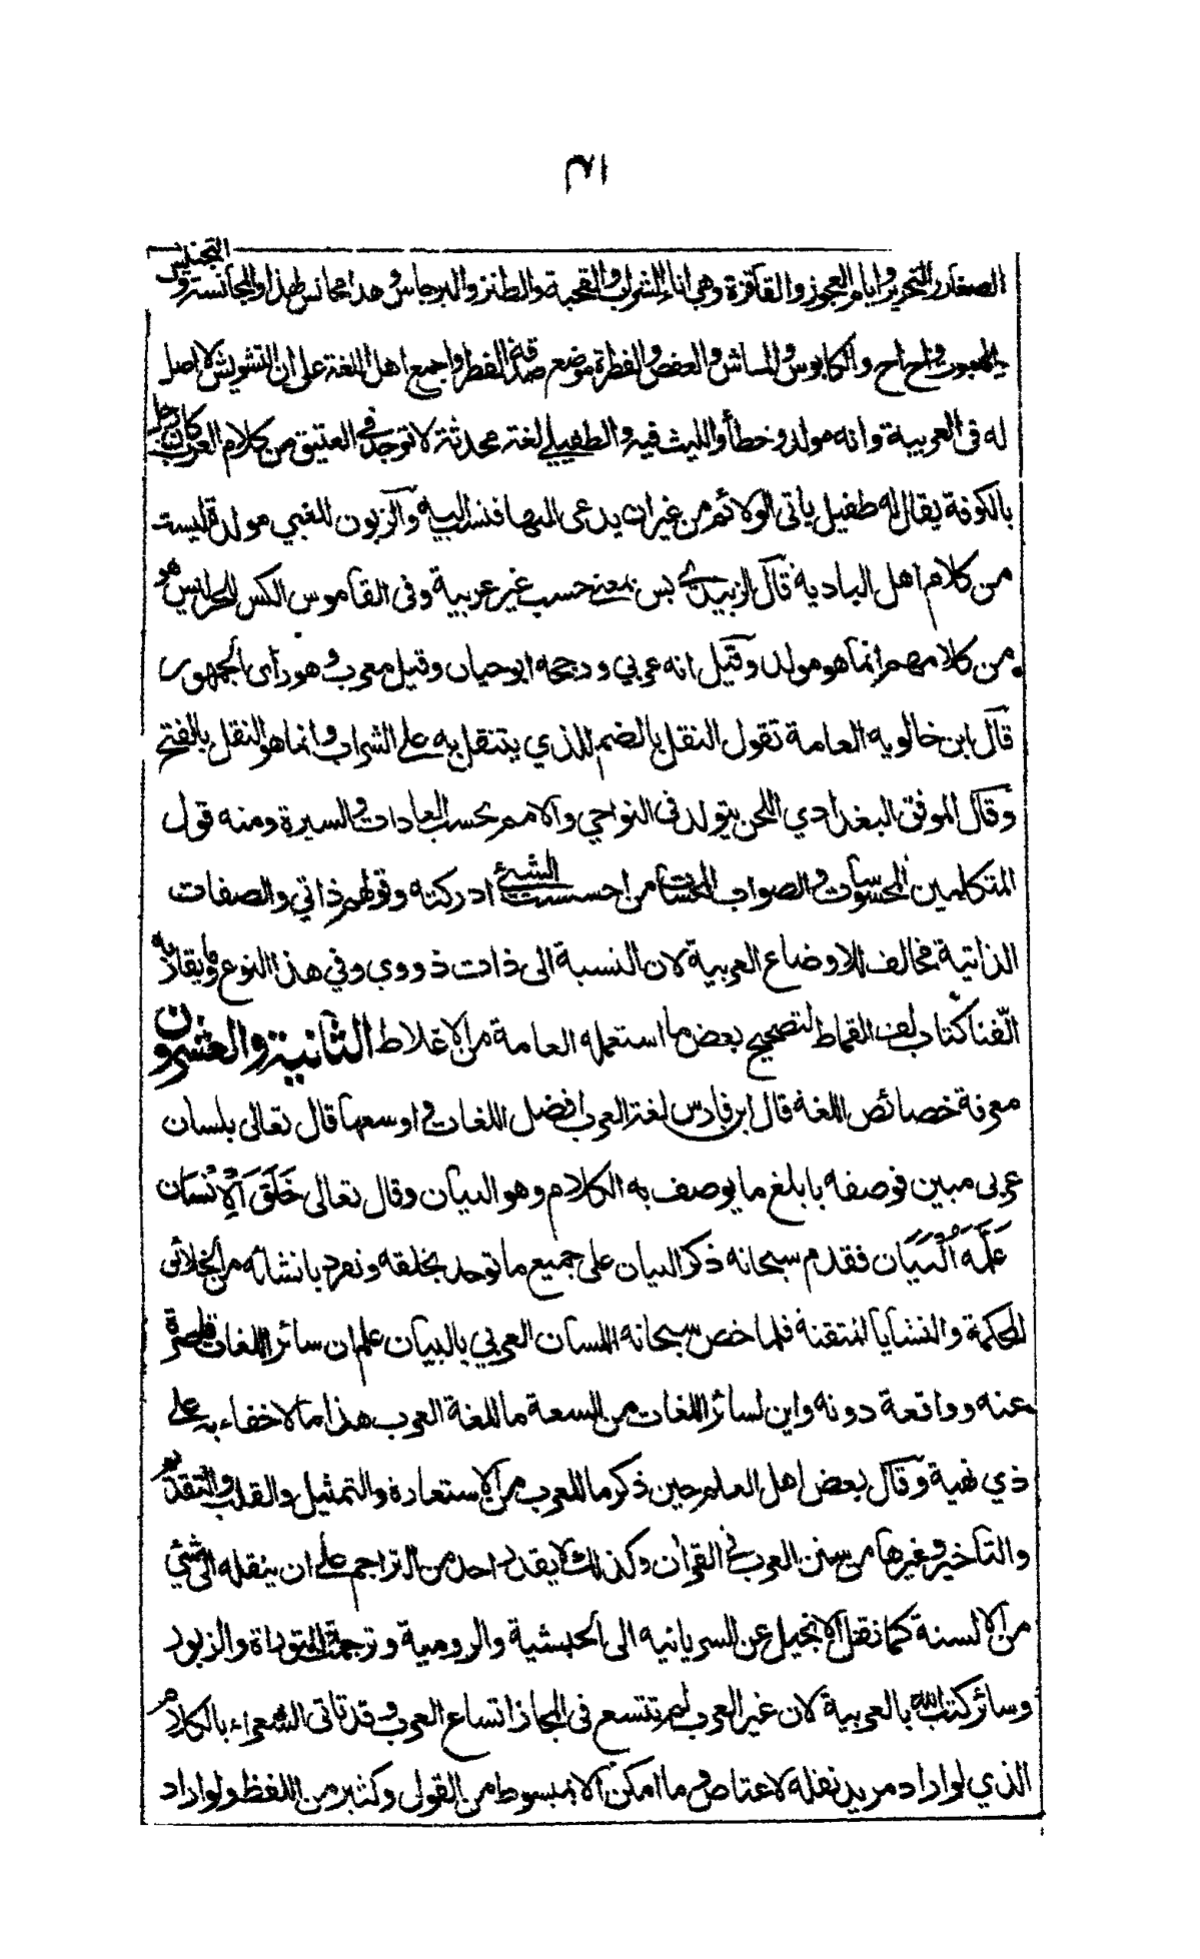 ١٣١
الصغار والتحرير وايام العجوز والقاقزة وهي اناء الشراب والقحبة والطنز والبرجاس وهذا مجانس لهذا والمجانسة والتجنيس
واح اح والكابوس والماش والعفص والفطرة موضع صدقة الفطر واجمع اهل اللغة على ان التشويش لا اصل
له فى العربية وانه مولد وخطأوا الليث فيه والطفيلي لغة محدثة لا توجد في العتيق من كلام العرب كان رجل
بالكوفة يقال له طفيل ياتى الولائم من غير ان يدعى اليها فنسب اليه والزبون للغبي مولدة ليست
من كلام اهل البادية قال الزبيدي بس بمعنى حسب غير عربية وفى القاموس الكس للحر ليس هو
من كلامهم انما هو مولد وقيل انه عربي ورجحه ابو حيان وقيل معرب وهو رأى الجمهور
قال ابن خالويه العامة تقول النقل بالضم للذي يتنقل به على الشراب وانما هو النقل بالفتح
وقال الموفق البغدادي اللحن يتولد فى النواحي والامم بحسب العادات والسيرة ومنه قول
المتكلمين المحسوسات والصواب المحسات من احسست الشيئ ادركته وقولهم ذاتي والصفات
الذاتية مخالف للاوضاع العربية لان النسبة الى ذات ذووي وفي هذا النوع وما يقاربه
الّفنا كتاب لف القماط لتصحيح بعض ما استعمله العامة من الاغلاط الثانية والعشرون
معرفة خصائص اللغة قال ابن فارس لغة العرب افضل اللغات و اوسعها قال تعالى بلسان
عربى مبين فوصفه بابلغ ما يوصف به الكلام وهو البيان وقال تعالى خَلَقَ الْاِنْسَان
عَلَّمَهُ الْبَيَان فقدم سبحانه ذكر البيان على جميع ما توحد بخلقه وتفرد بانشائه من الخلائق
المحكمة والنشايا المتقنة فلما خص سبحانه اللسان العربي بالبيان علم ان سائر اللغات قاصرة
عنه وواقعة دونه واين لسائر اللغات من السعة ما للغة العرب هذا مما لا خفاء به على
ذي نهية وقال بعض اهل العلم حين ذكر ما للعرب من الاستعارة والتمثيل والقلب والتقديم
والتاخير وغيرها من سنن العرب فى القران وكذلك لا يقدر احد من التراجم على ان ينقله الى شئي
من الالسنة كما نقل الانجيل عن السريانيه الى الحبشية والرومية وترجمة التوراة والزبور
وسائر كتب الله بالعربية لان غير العرب لم تتسع فى المجاز اتساع العرب وقد تاتى الشعراء بالكلام
الذي لو اراد مريد نقله لاعتاص وما امكن الا بمبسوط من القول وكثير من اللفظ ولو اراد